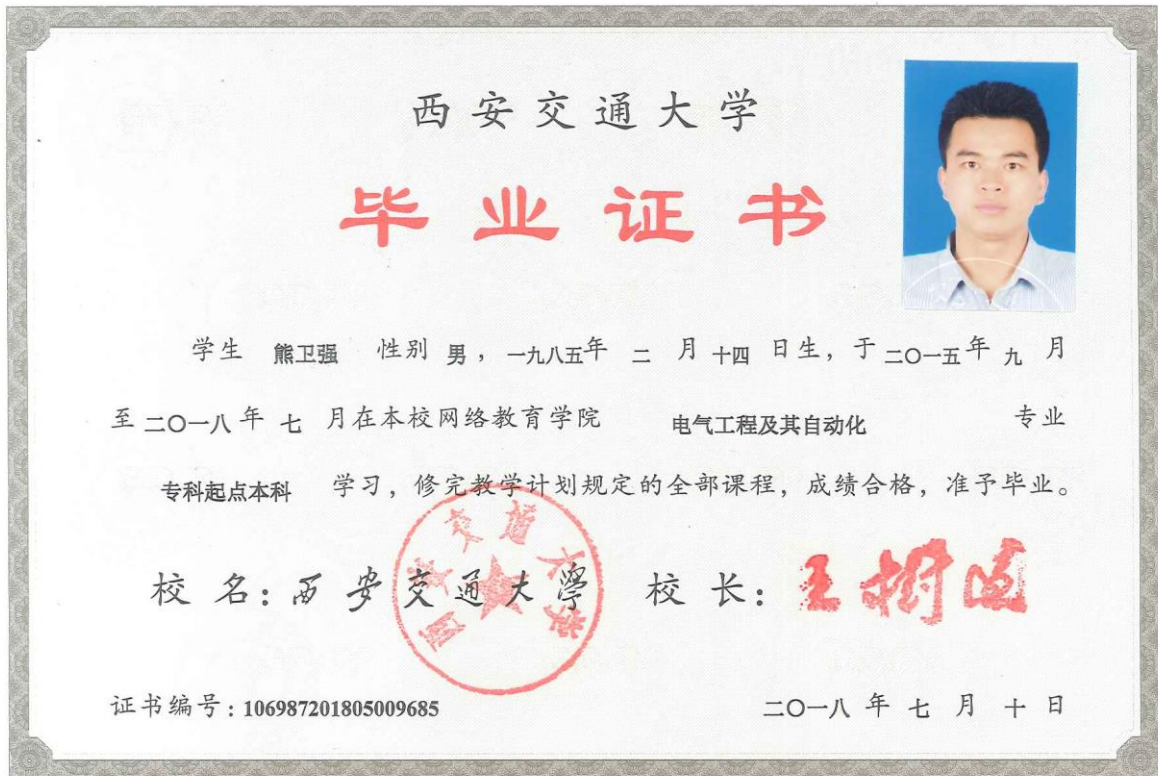 西安交通大学
毕业证书
学生 熊卫强 性别 男，一九八五年 二 月 十四 日生，于 二〇一五年 九 月
至 二〇一八 年 七 月在本校网络教育学院 电气工程及其自动化 专业
专科起点本科 学习，修完教学计划规定的全部课程，成绩合格，准予毕业。
校 名：西安交通大学 校 长：王树国
西安交通大学
证书编号：106987201805009685
二〇一八 年 七 月 十 日